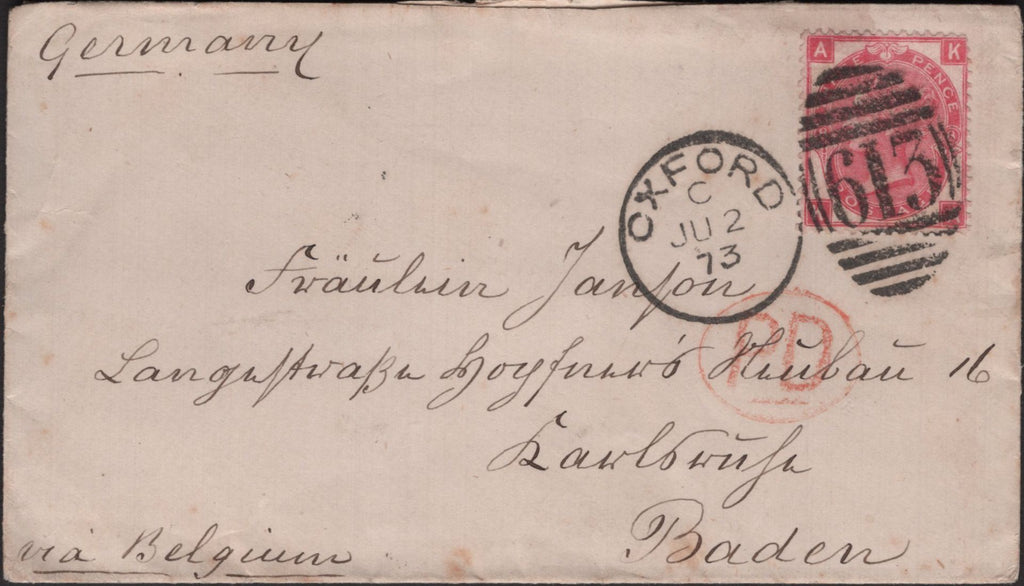 Germany
A K
PENCE
613
OXFORD
C
JU 2
73
Fräulein Janson
PD
Langestraße Hopfner's Neubau 16
Karlsruhe
Baden
via Belgium